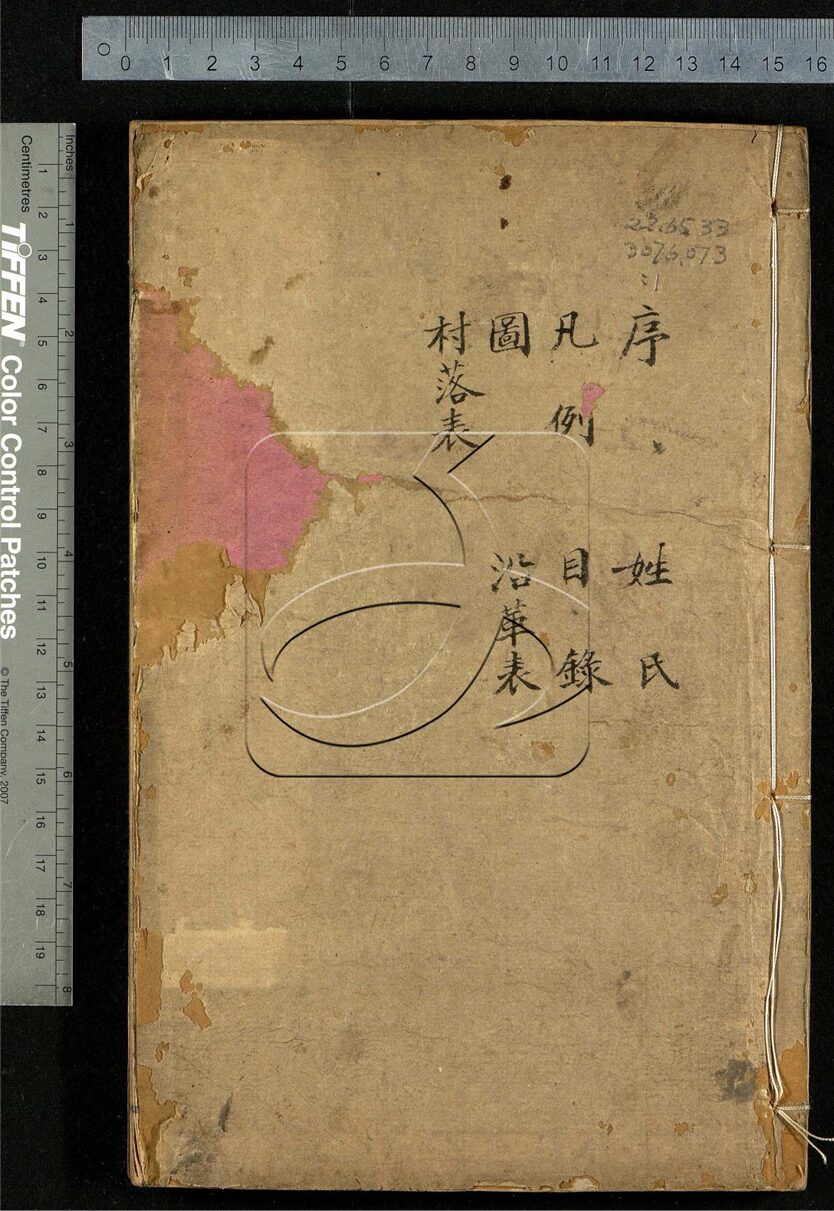 序 姓氏
凡例 目錄
圖 沿革表
村落表
22.6533
3076.073
:1
0 1 2 3 4 5 6 7 8 9 10 11 12 13 14 15 16
Inches
1 2 3 4 5 6 7 8
Centimetres
1 2 3 4 5 6 7 8 9 10 11 12 13 14 15 16 17 18 19
TIFFEN® Color Control Patches
© The Tiffen Company, 2007